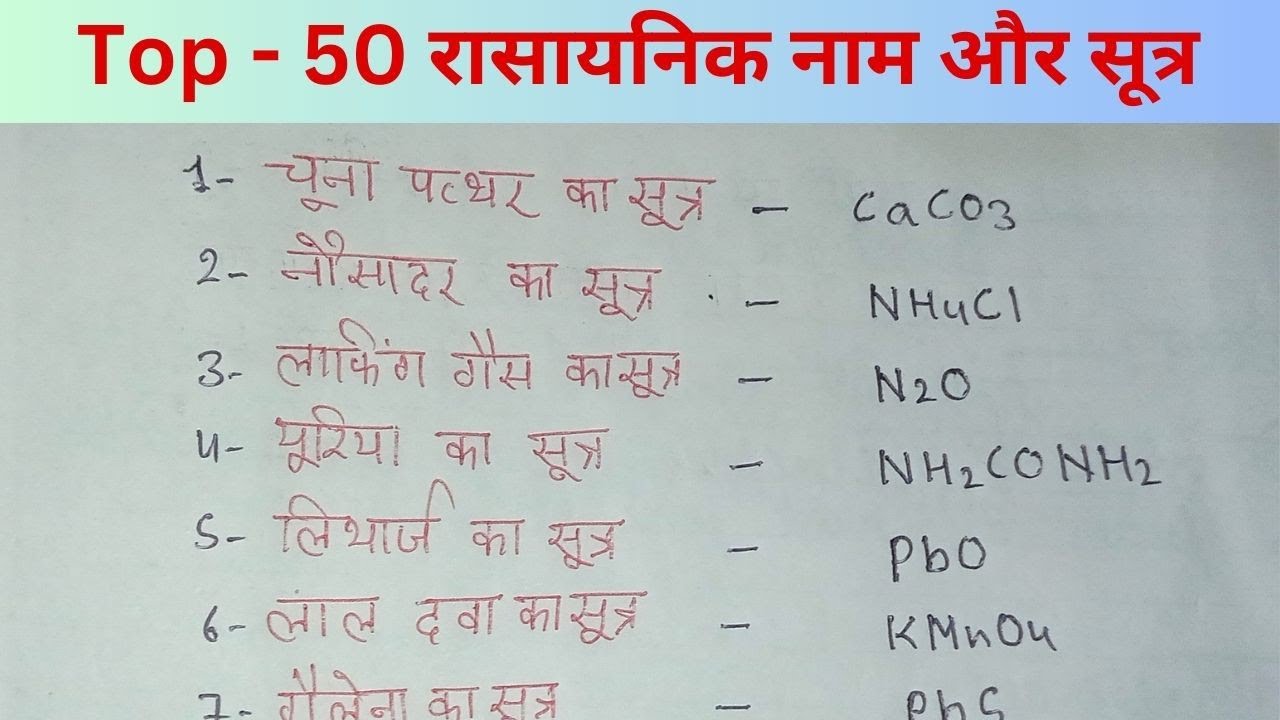 Top - 50 रासायनिक नाम और सूत्र
1- चूना पत्थर का सूत्र - CaCO3
2- नौसादर का सूत्र - NH4Cl
3- लाफिंग गैस का सूत्र - N2O
4- यूरिया का सूत्र - NH2CONH2
5- लिथार्ज का सूत्र - PbO
6- लाल दवा का सूत्र - KMnO4
7- गैलेना का सूत्र - PbS